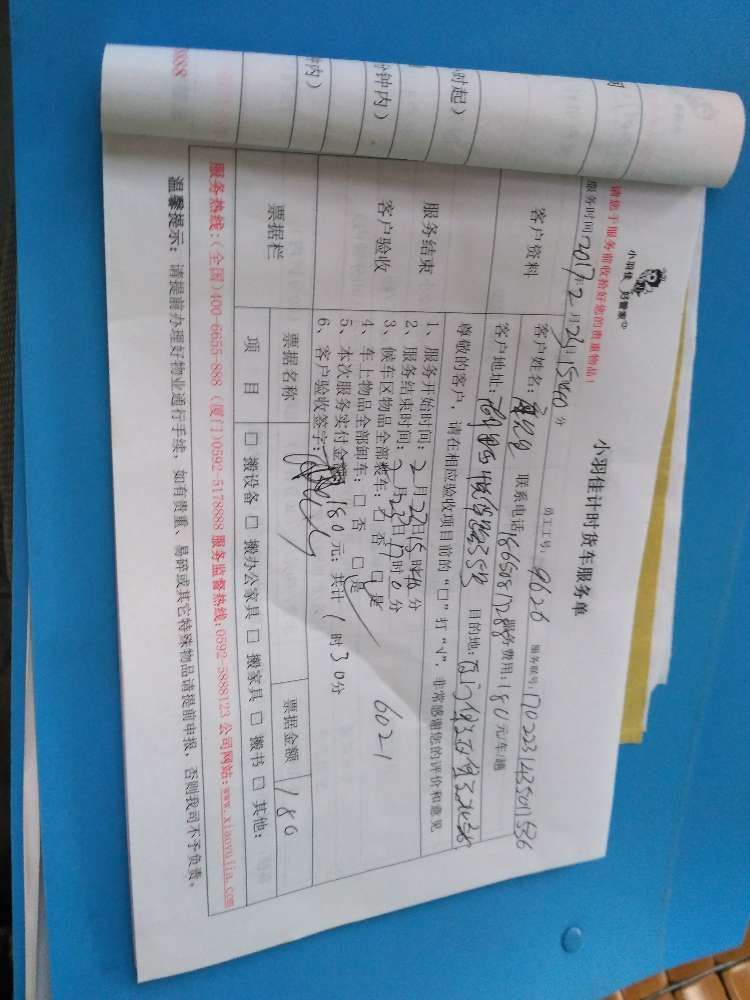 小羽佳 好管家
小羽佳计时货车服务单
请您于服务前收拾好您的贵重物品!
员工工号: 9626 服务账号: 170223143501536
服务时间: 2017年2月 日15时00分
客户资料
客户姓名: 联系电话: 服务费用: 180元/车/趟
客户地址: 目的地:
服务结束
客户验收
尊敬的客户, 请在相应验收项目前的“口”打“√”, 非常感谢您的评价和意见
1、服务开始时间: 2月23日15时 分
2、服务结束时间: 2月23日17时0分
3、候车区物品全部装车: □ 否 □ 是
4、车上物品全部卸车: □ 否 □ 是
5、本次服务实付金额: 180元; 共计 1时30分
6、客户验收签字:
6021
票据栏
票据名称 票据金额 180
项 目 □ 搬设备 □ 搬办公家具 □ 搬家具 □ 搬书 □ 其他:
服务热线: (全国)400-6655-888 (厦门)0592-5178888 服务监督热线:0592-5888123 公司网站:www.xiaoyujia.com
温馨提示: 请提前办理好物业通行手续, 如有贵重、易碎或其它特殊物品请提前申报, 否则我司不予负责。
时起)
分钟内)
钟内)
8888